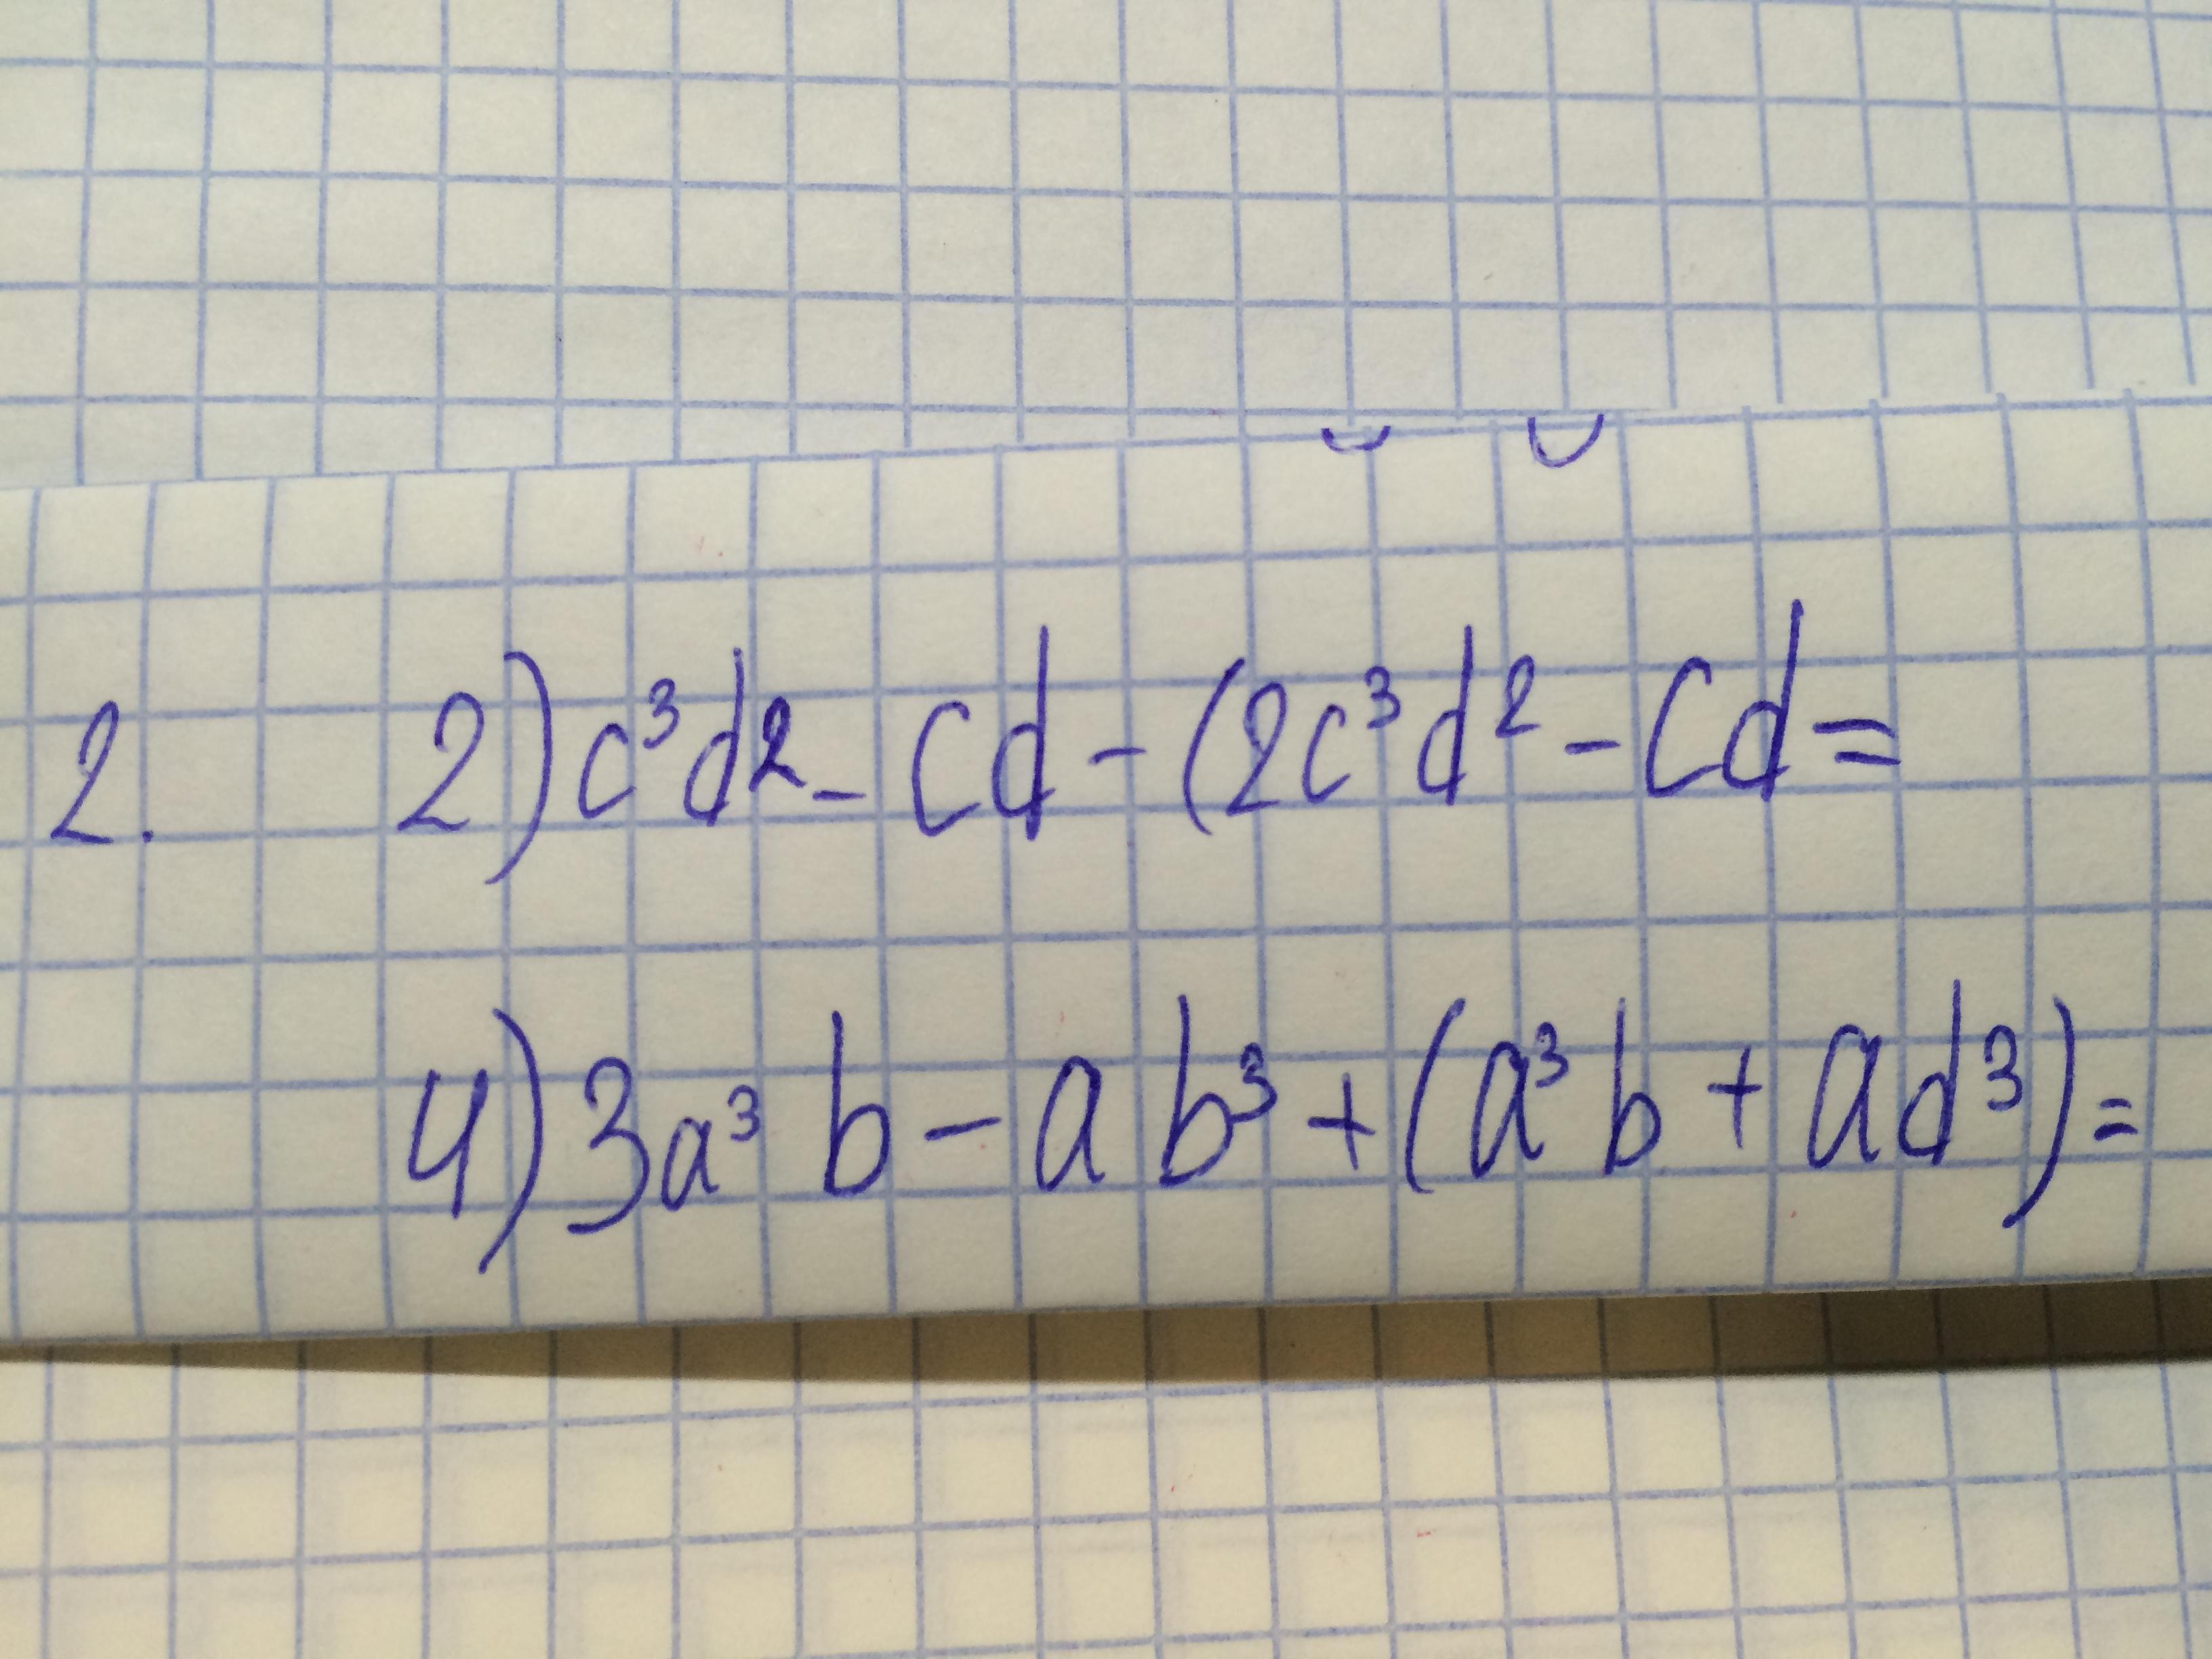 2. 2) c³d2 - cd - (2c³d² - cd =
4) 3a³b - ab³ + (a³b + ad³) =